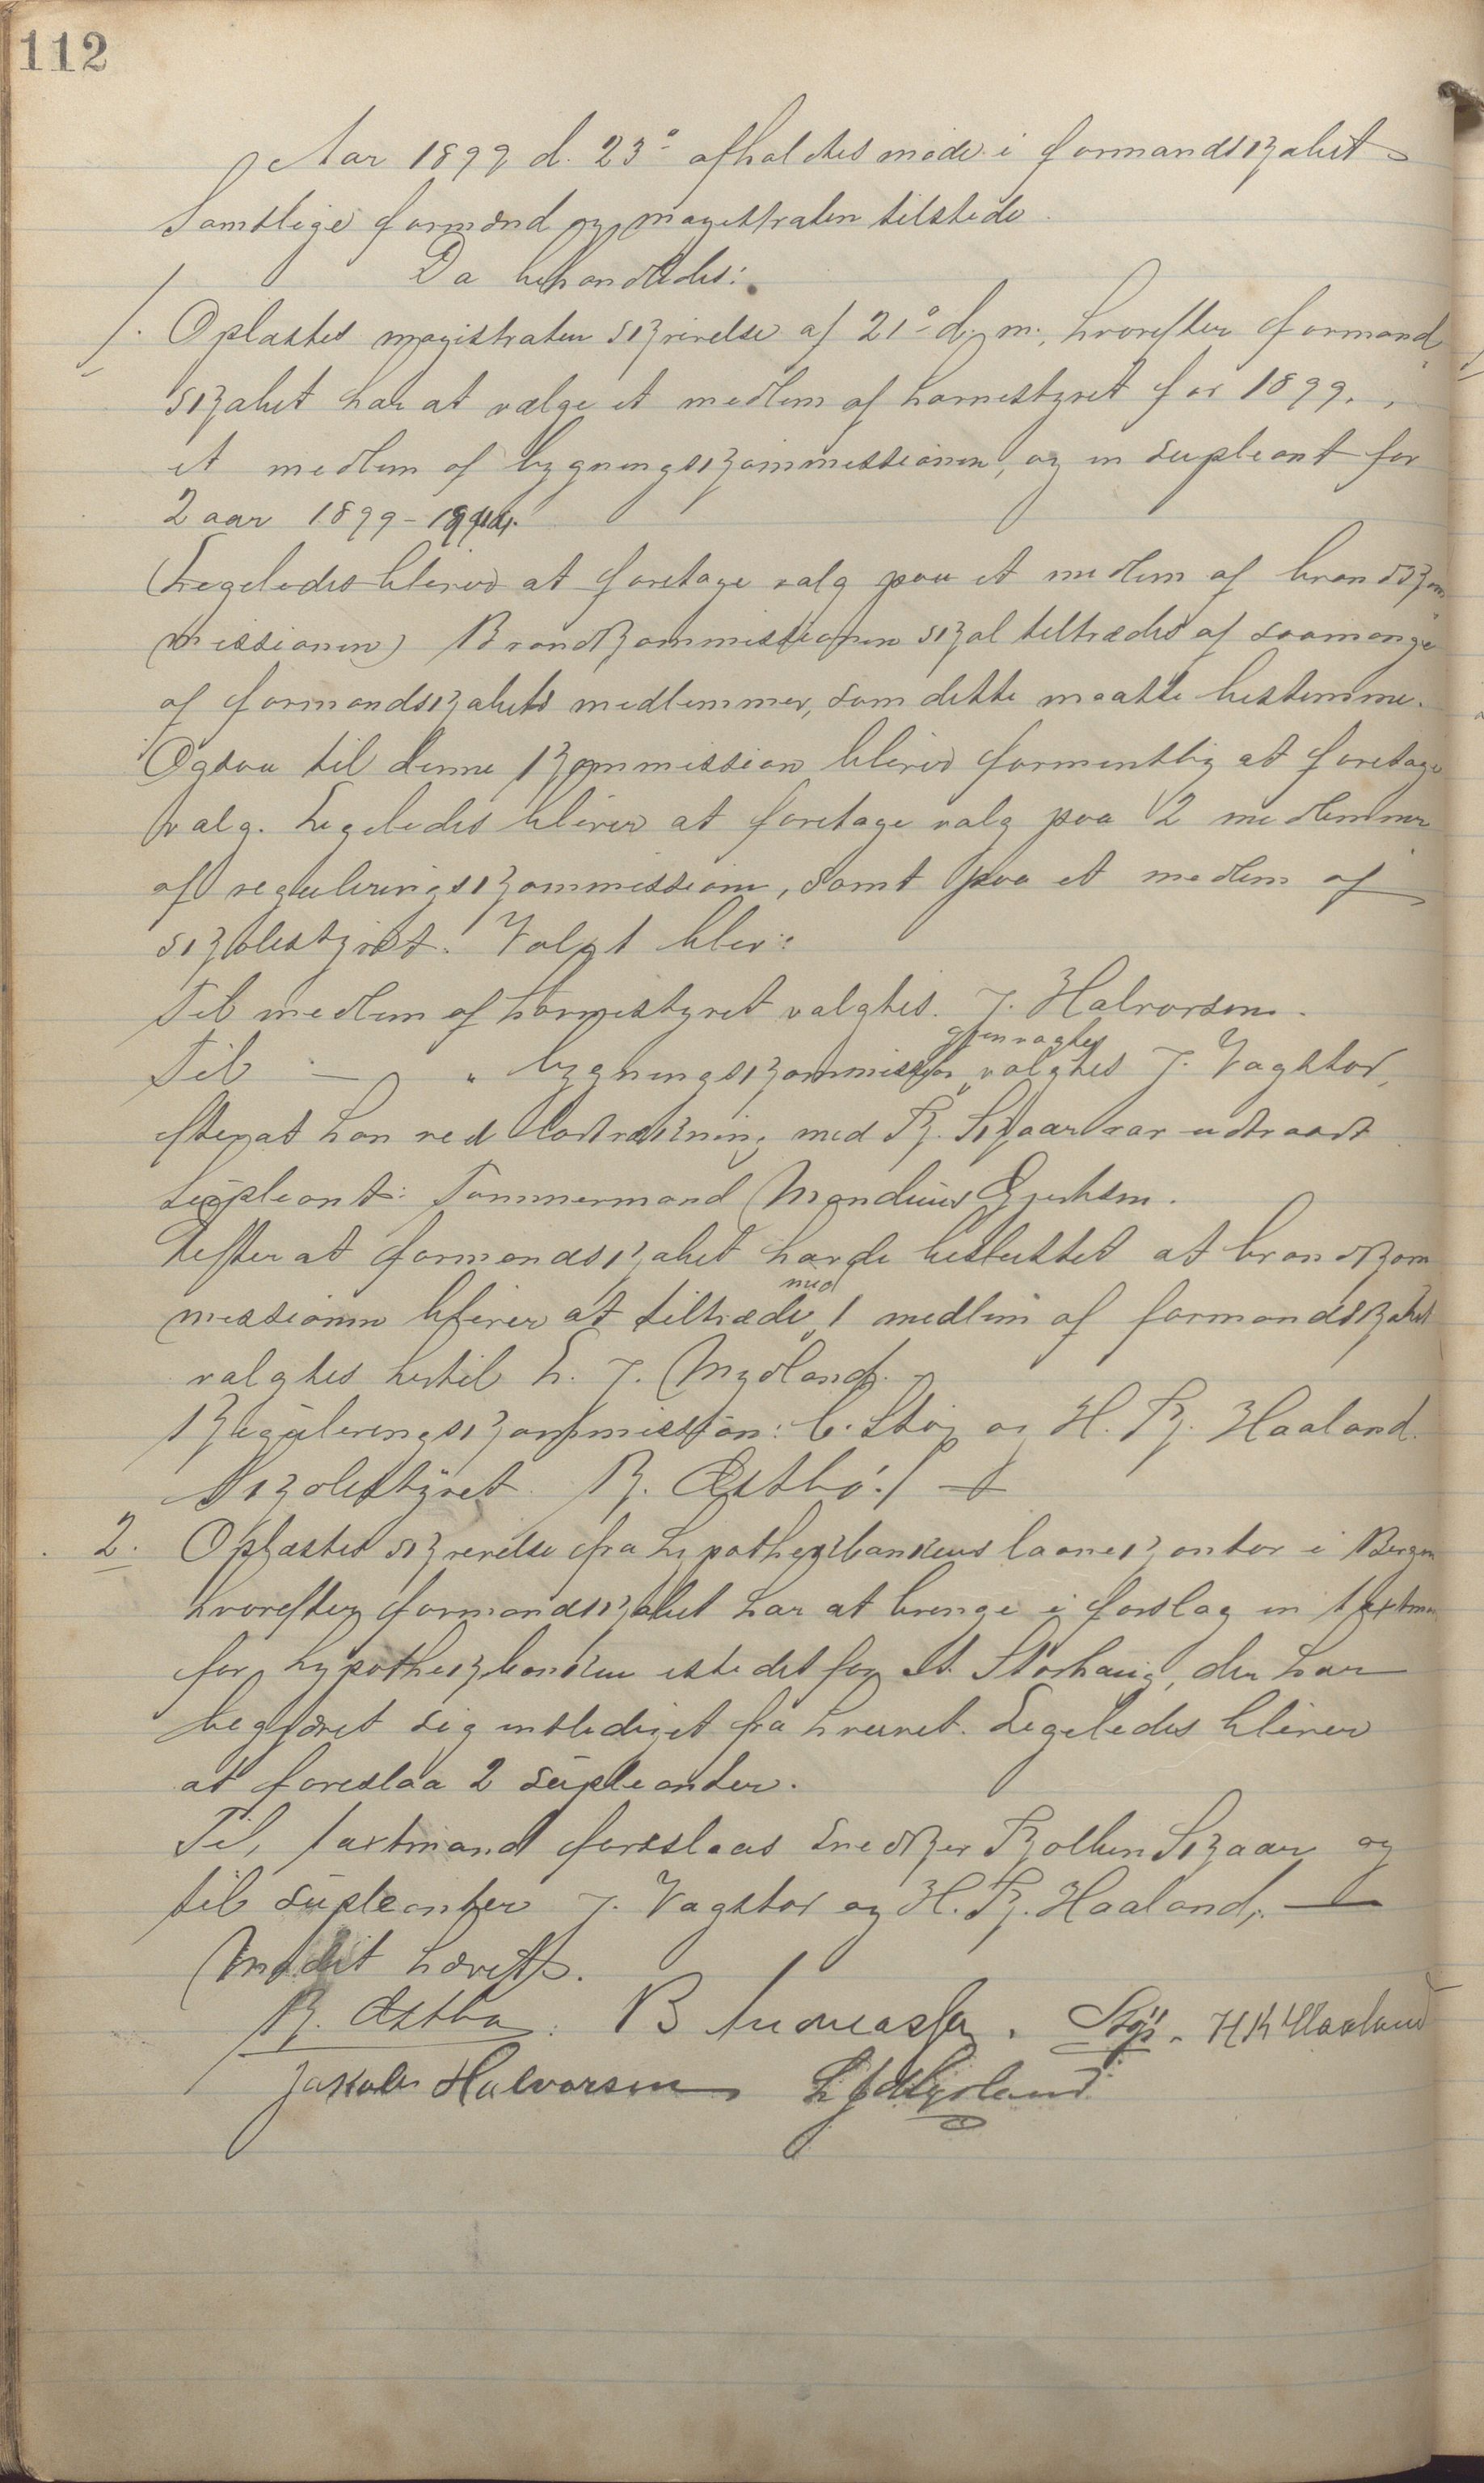 112
Aar 1899 d. 23de afholdtes møde i formandskabet
Samtlige formænd og magistraten tilstede.
Da behandledes:
1. Oplæstes magistratens skrivelse af 21de d. m., hvorefter formand
skabet har at vælge et medlem af havnestyret for 1899.,
et medlem af bygningskommissionen, og en supleant for
2 aar 1899-
Ligeledes bliver at foretage valg paa et medlem af brandkom
missionen) Brandkommissionen skal tiltrædes af saamange
af formandskabets medlemmer, som dette maatte bestemme.
Ogsaa til denne kommission bliver formentlig at foretage
valg. Ligeledes bliver at foretage valg paa 2 medlemmer
af reguleringskommissionen, samt paa et medlem af
skolestyret. Valgt blev:
Til medlem af havnestyret valgtes. J. Halvorsen.
Til — " bygningskommission gjenvagtes valgtes J. Vagstol,
efterat han ved lodtrækning med K. Skaar var udtraadt
Supleant: Tømmermand Mandius Gjertsen.
Efter at formandskabet havde besluttet at brandkom
missionen bliver at tiltræde med 1 medlem af formandskabet
valgtes hertil L. J. Mydland.
Reguleringskommission: C. Støy og H. K. Haaland.
Skolestyret K. Østbø. / —
2. Oplæstes skrivelse fra hypothekbankens laanekontor i Bergen
hvorefter formandskabet har at bringe i forslag en taxtman
for hypothekbanken istedet for St. Storhaug, der har
begjæret sig entlediget fra hvervet. Ligeledes bliver
at foreslaa 2 supleanter.
Til taxtmand foreslaaes Snedker Kolben Skaar og
til supleanter J. Vagstol og H. K. Haaland, —
Mødet hævet.
K. Østbø. B Andreassen. Støy. H K Haaland
Jakob Halvorsen L J Mydland